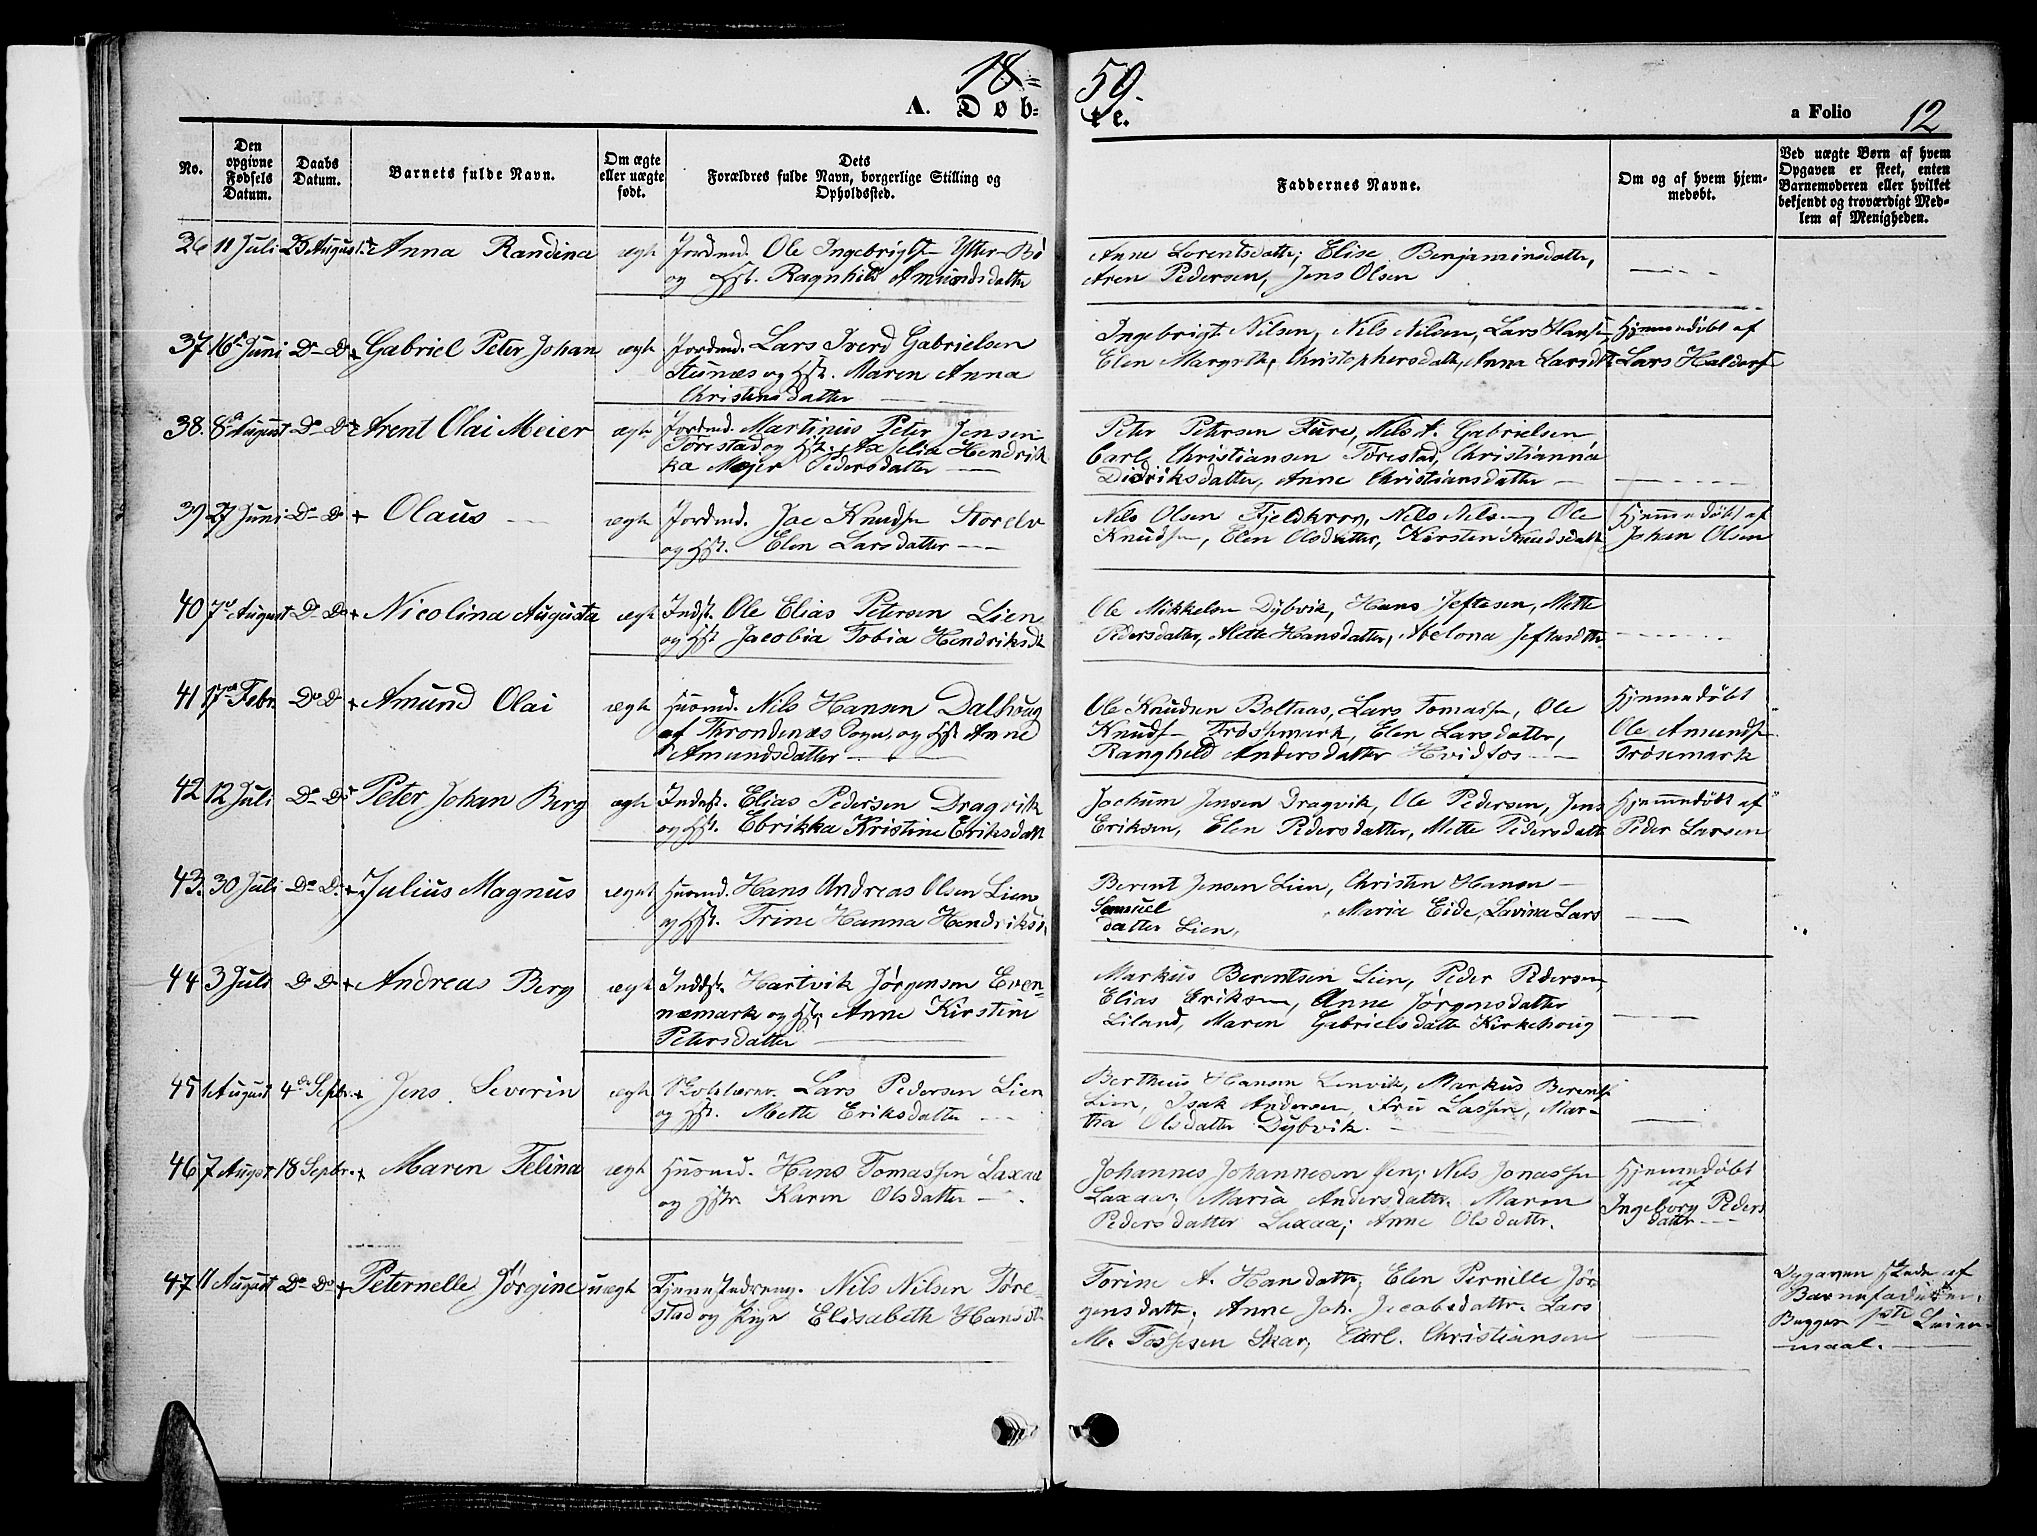 18=
59.
A. Døb=
te.
a Folio 12
No.
Den opgivne Fødsels Datum.
Daabs Datum.
Barnets fulde Navn.
Om ægte eller uægte født.
Dets Forældres fulde Navn, borgerlige Stilling og Opholdssted.
Faddernes Navne.
Om og af hvem hjemmedøbt.
Ved uægte Børn af hvem Opgaven er skeet, enten Barnemoderen eller hvilket bekjendt og troværdigt Medlem af Menigheden.
36 11 Juli 25 August Anna Randina ægte Jordmd. Ole Ingebrigts Ytter-Bø
og Hst. Ragnhild Amundsdatter
Anne Lorentsdatter; Elise Benjaminsdatter,
Aren Pedersen, Jens Olsen
37 16de Juni Do Do Gabriel Peter Johan ægte Jordmd. Lars Iverd Gabrielsen
Stunæs og Hst. Maren Anna
Christensdatter
Ingebrigt Nilsen, Nils Nilsen, Lars Hansen Hjemmedøbt af
Elen Margrethe Christophersdatter, Anna Larsdtr Lars Haldors
38. 8de August Do Do Arent Olai Meier ægte Jordmd. Martinus Peter Jensen
Tørestad og Hst. Axelia Hendrik
ka Mejer Pedersdatter
Peter Petersen Fure, Nils A. Gabrielsen
Carl Christiansen Tørestad, Christianna
Didriksdatter, Anne Christiansdatter
39 27 Juni Do Do Olaus ægte Jordmd. Jac Knudsen Storelv
og Hst. Elen Larsdatter
Nils Olsen Fjeldkrog, Nils Nilsen, Ole Hjemmedøbt af
Knudsen, Elen Olsdatter, Kirsten Knudsdatter Johan Olsen
40 7de August Do Do Nicolina Augusta ægte Indst. Ole Elias Petersen Lien
og Hst Jacobia Tobia Hendriksd
Ole Mikkelsen Dybvik, Hans Jeftesen, Mette
Pedersdatter, Mette Hansdatter, Abelona Jeftasdtter
41 17de Febr. Do Do Amund Olai ægte Husmd. Nils Hansen Dalhoug
af Throndenæs Sogn, og Hst Anne
Amundsdatter
Ole Knudsen Boltaas, Lars Tomassen, Ole Hjemmedøbt
Knuds Trøssemark, Elen Larsdatter, Ole Amunds
Rangheld Andersdatter Hvidfos Trøsemark
42 12 Juli Do Do Peter Johan Berg ægte Indest. Elias Pedersen Dragvik
og Hst. Ebrikka Kristine Eriksdatt
Jochum Jensen Dragvik, Ole Pedersen, Jens Hjemmedøbt af
Eriksen, Elen Pedersdatter, Mette Pedersdatt Peder Larsen
43. 30 Juli Do Do Julius Magnus ægte Husmd. Hans Andreas Olsen Lien
og Hst. Trine Hanna Hendriksd.
Berent Jensen Lien, Christen Hansen
Samuel Maria Eide, Lavina Lars
datter Lien,
44 3 Juli Do Do Andreas Berg ægte Inddst. Hartvik Jørgensen Even-
nemark og Hst. Anne Kirstine
Petersdatter
Markus Berentsen Lien, Peder Pedersen,
Elias Eriksen, Anne Jørgensdatter
Liland, Maren Gabrielsdatter Kirkehoug
45 1 August 4de Septbr. Jens Severin ægte Skolelærer. Lars Pedersen Lien
og Hst. Mette Eriksdatter
Bertheus Hansen Lenvik, Markus Berents
Lien, Isak Andersen, Fru Lassen, Mar-
tha Olsdatter Dybvik.
46 7 August 18 Septbr. Maren Telina ægte Husmd. Hans Tomassen Laxaa
og Hstr. Karen Olsdatter
Johannes Johannesen Øen; Nils Jonassen Hjemmedøbt
af
Laxaa; Maria Andersdatter. Maren Ingeborg Peders
Pedersdatter Laxaa; Anne Olsdattr. datter
47 11 August Do Do Peternelle Jørgine uægte Tjenestedreng. Nils Nilsen Tøre-
stad og Pige Elisabeth Hansdt
Torine A. Hansdatter; Elen Pernille Jør
gensdattr; Anne Joh. Jacobsdattr. Lars
M. Tossesen Skar, Carl. Christiansen
Opgaven skede af
Barnefaderen.
Begges 1ste Leier-
maal.